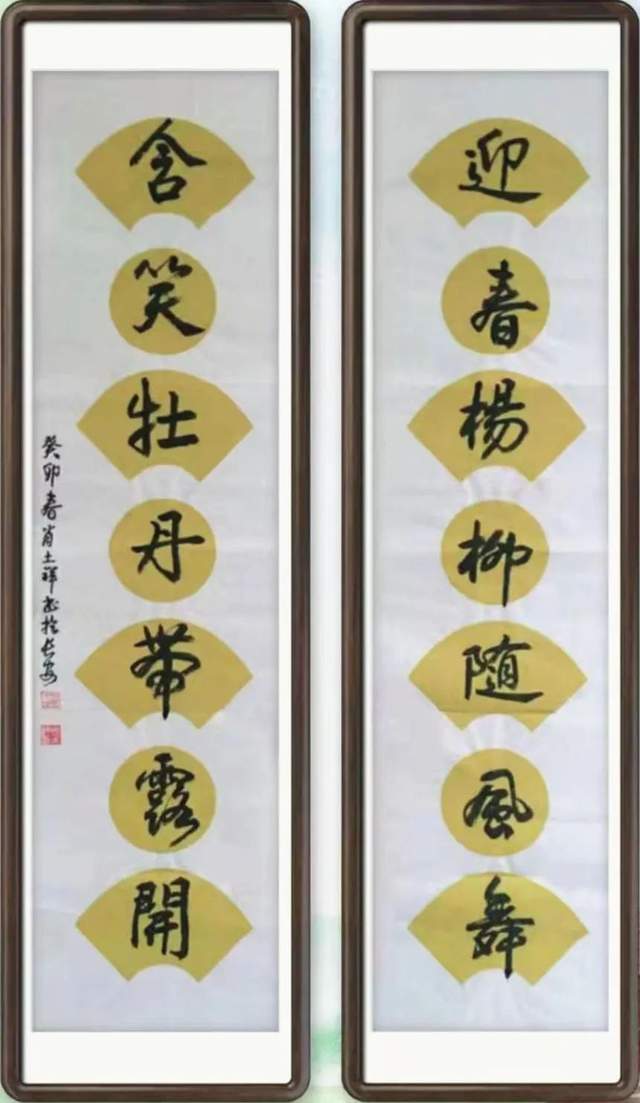 迎春楊柳随風舞
含笑牡丹帶露開
癸卯春肖土祥书於长安